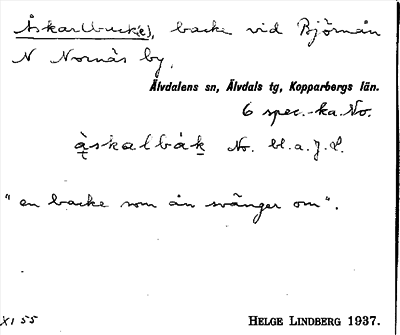 Åskarlbuck(e), backe vid Björnån
N Nornäs by,
Älvdalens sn, Älvdals tg, Kopparbergs län.
6 spec.-ka. No.
àskalbàk No. bl.a.J.L.
"en backe som ån svänger om".
XI 55 HELGE LINDBERG 1937.